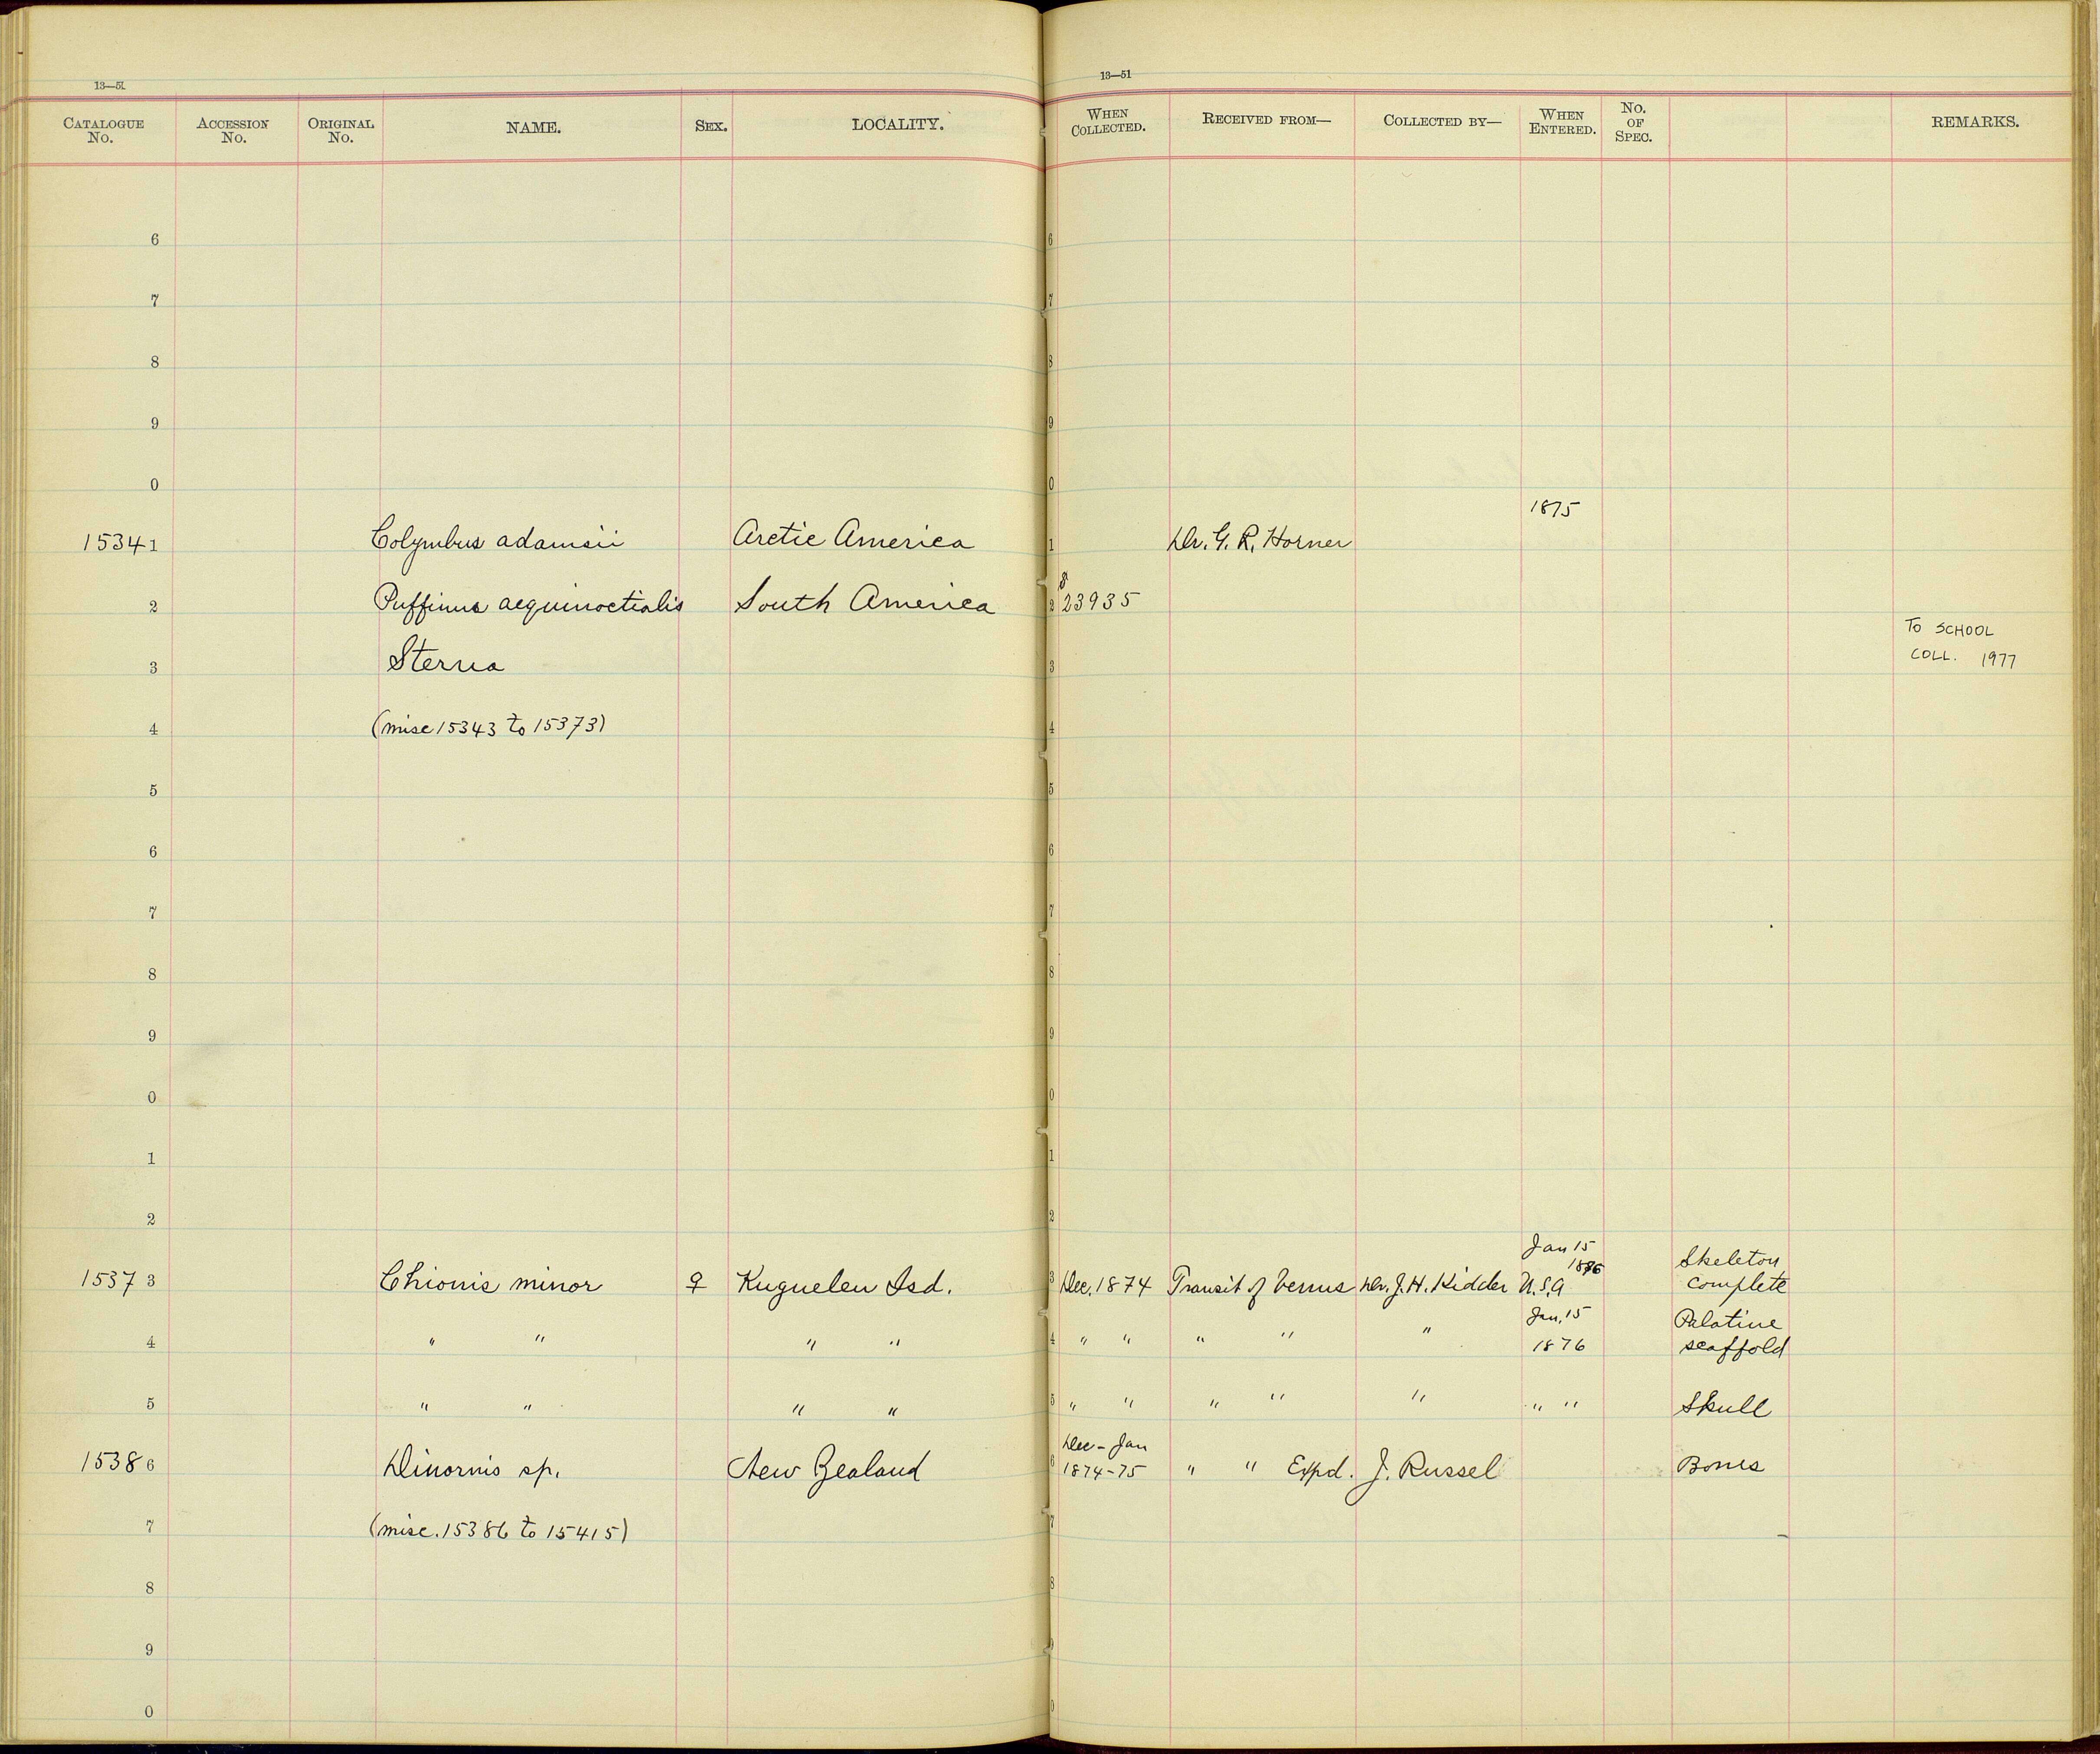 13—51
CATALOGUE No. ACCESSION No. ORIGINAL No. NAME. SEX. LOCALITY.
13—51
WHEN COLLECTED. RECEIVED FROM— COLLECTED BY— WHEN ENTERED. No. OF SPEC. REMARKS.
6
7
8
9
0
1875
15341 Colymbus adamsii Arctic America 1 Dr. G. R. Horner
2 Puffinus aequinoctialis South America 2 23935
TO SCHOOL
COLL. 1977
3 Sterna 3
4 (misc 15343 to 15373) 4
5
6
7
8
9
0
1
2
Jan 15
1876
Skeleton
15373 Chionis minor ♀ Kuguelen Isd. 3 Dec. 1874 Transit of Venus Dr. J. H. Kidder U.S.A. complete
Jan. 15 Palatine
4 " " " " 4 " " " " " 1876 scaffold
5 " " " " 5 " " " " " " " Skull
Dec - Jan
15386 Dinornis sp. New Zealand 6 1874-75 " " Expd. J. Russel Bones
7 (misc. 15386 to 15415) 7
8
9
0